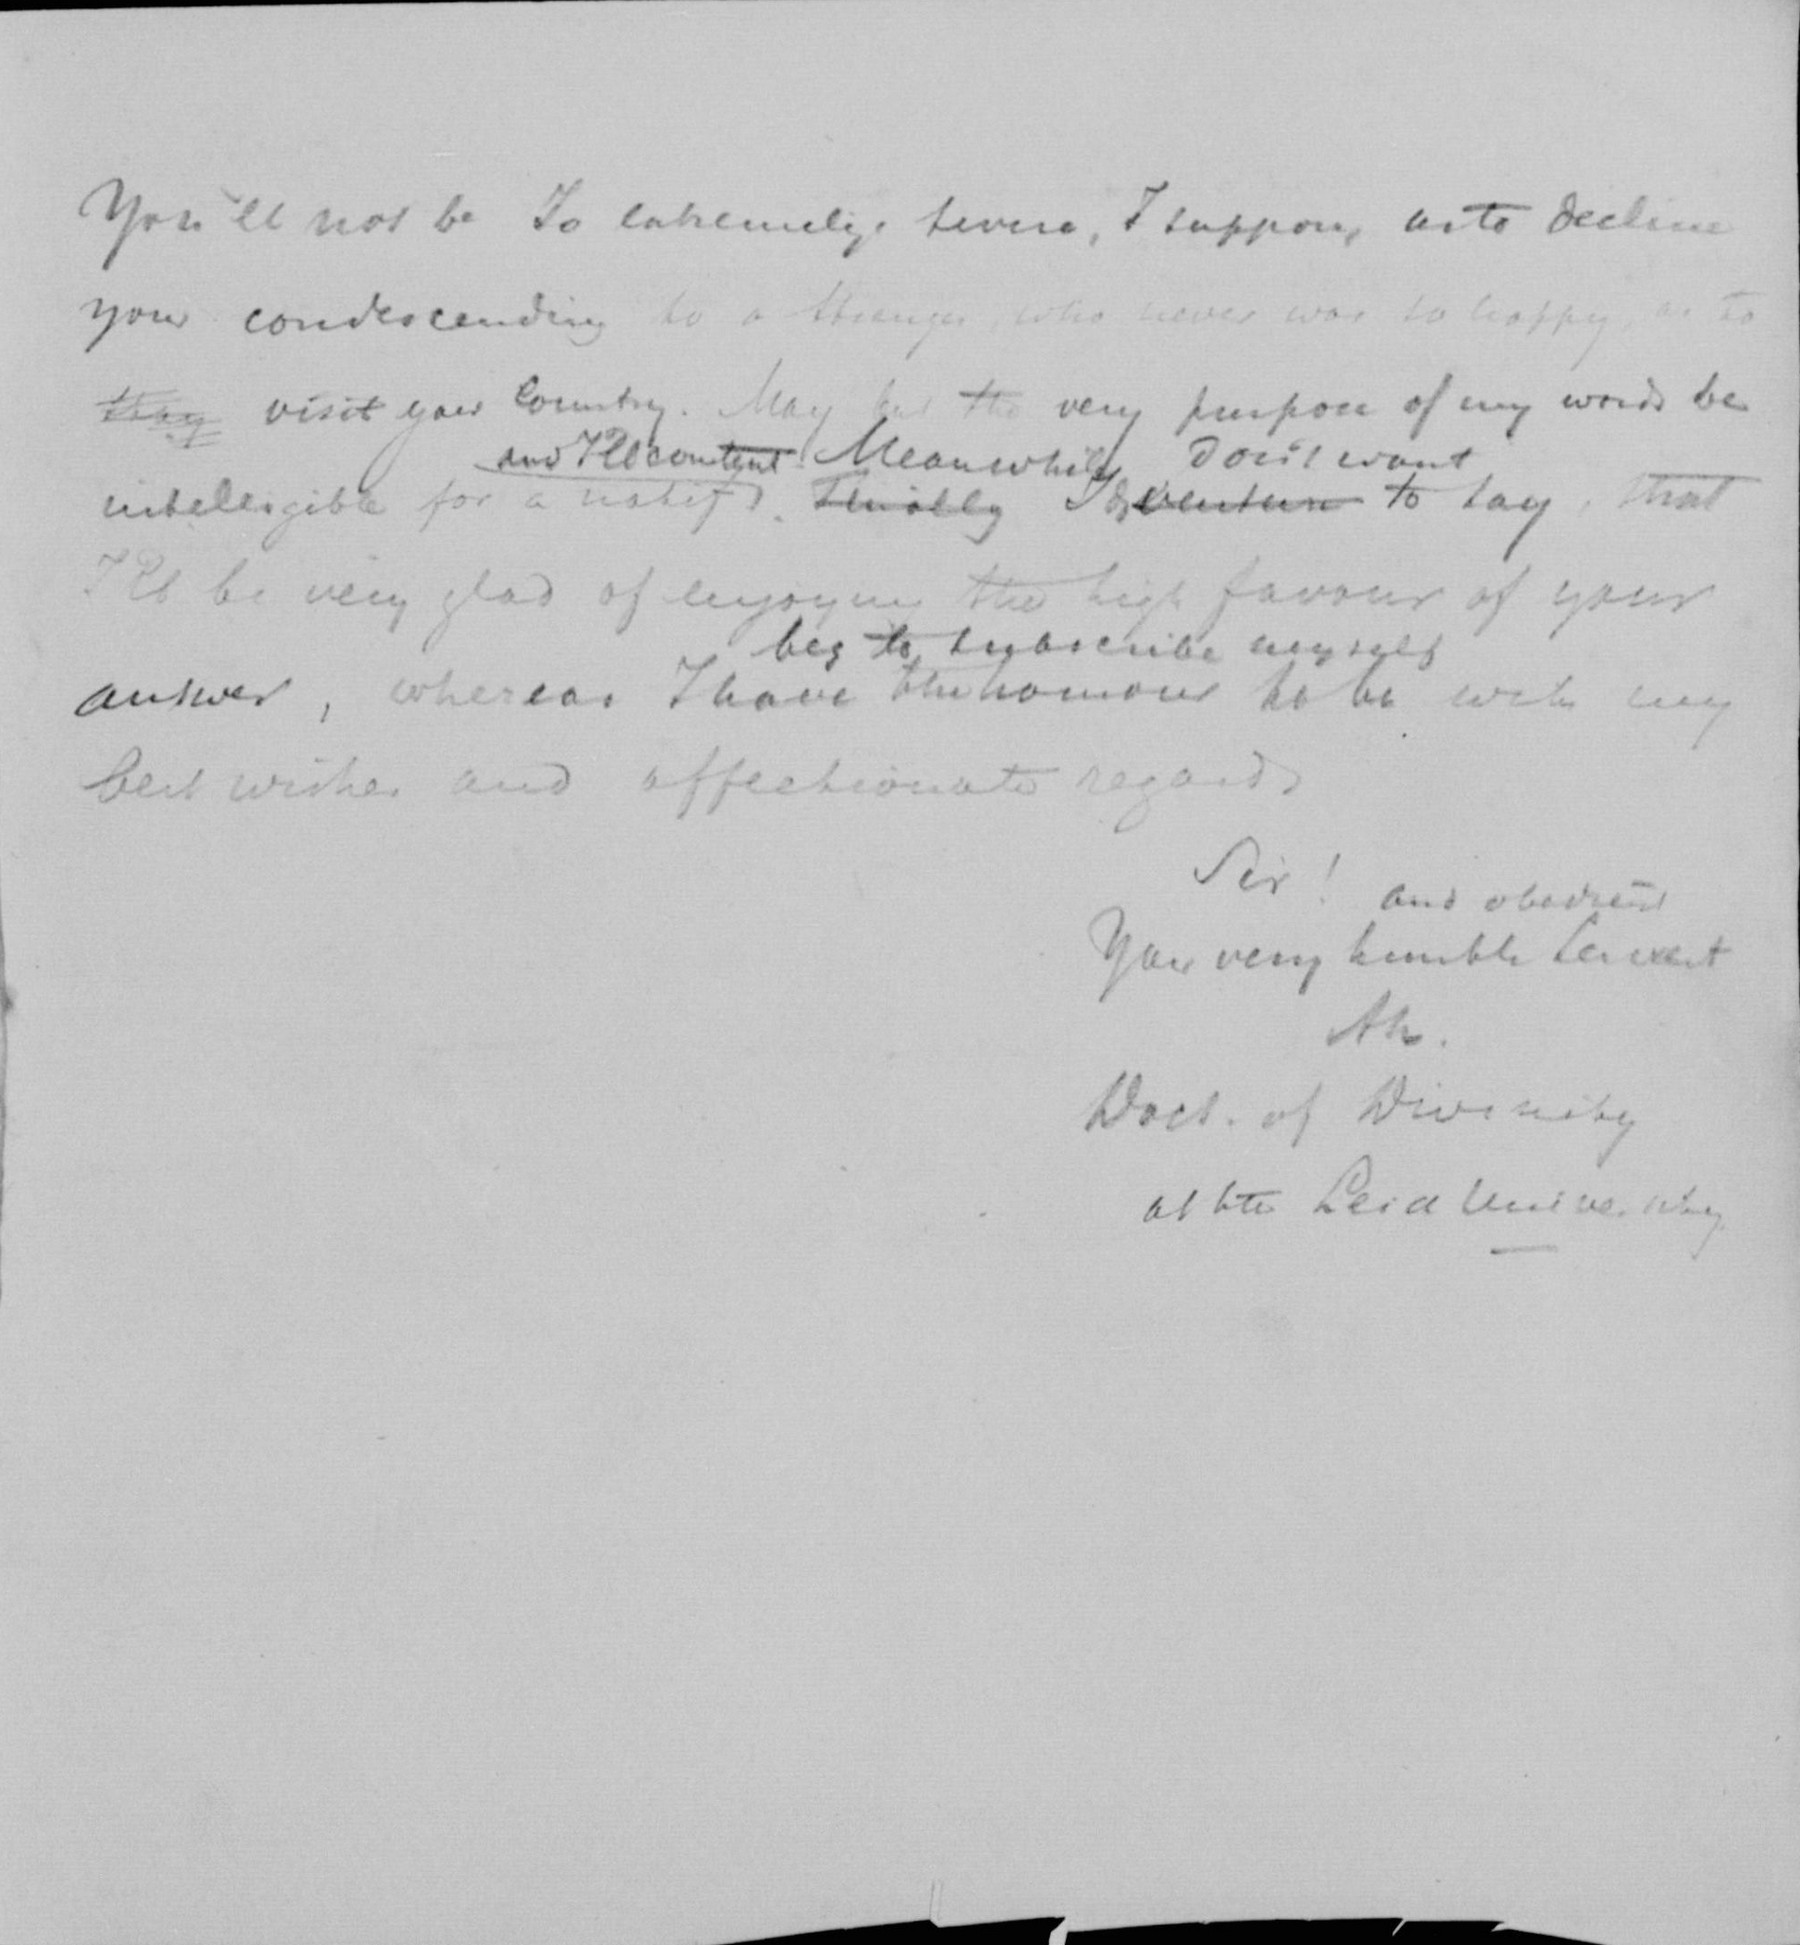 You'll not be so extremely severe, I suppose, as to decline
your condescending to a stranger, who never was so happy, as to
stay visit your Country. May but the very purpose of my words be
and I'll content Meanwhile don't want
intelligible for a native. Finally I venture to say, that
I'll be very glad of enjoying the high favour of your
beg to subscribe myself
answer, whereas I have the honour to be with my
best wishes and affectionate regards
Sir! and obedient
Your very humble Servant
Ah.
Doct. of Divinity
at the Leid University